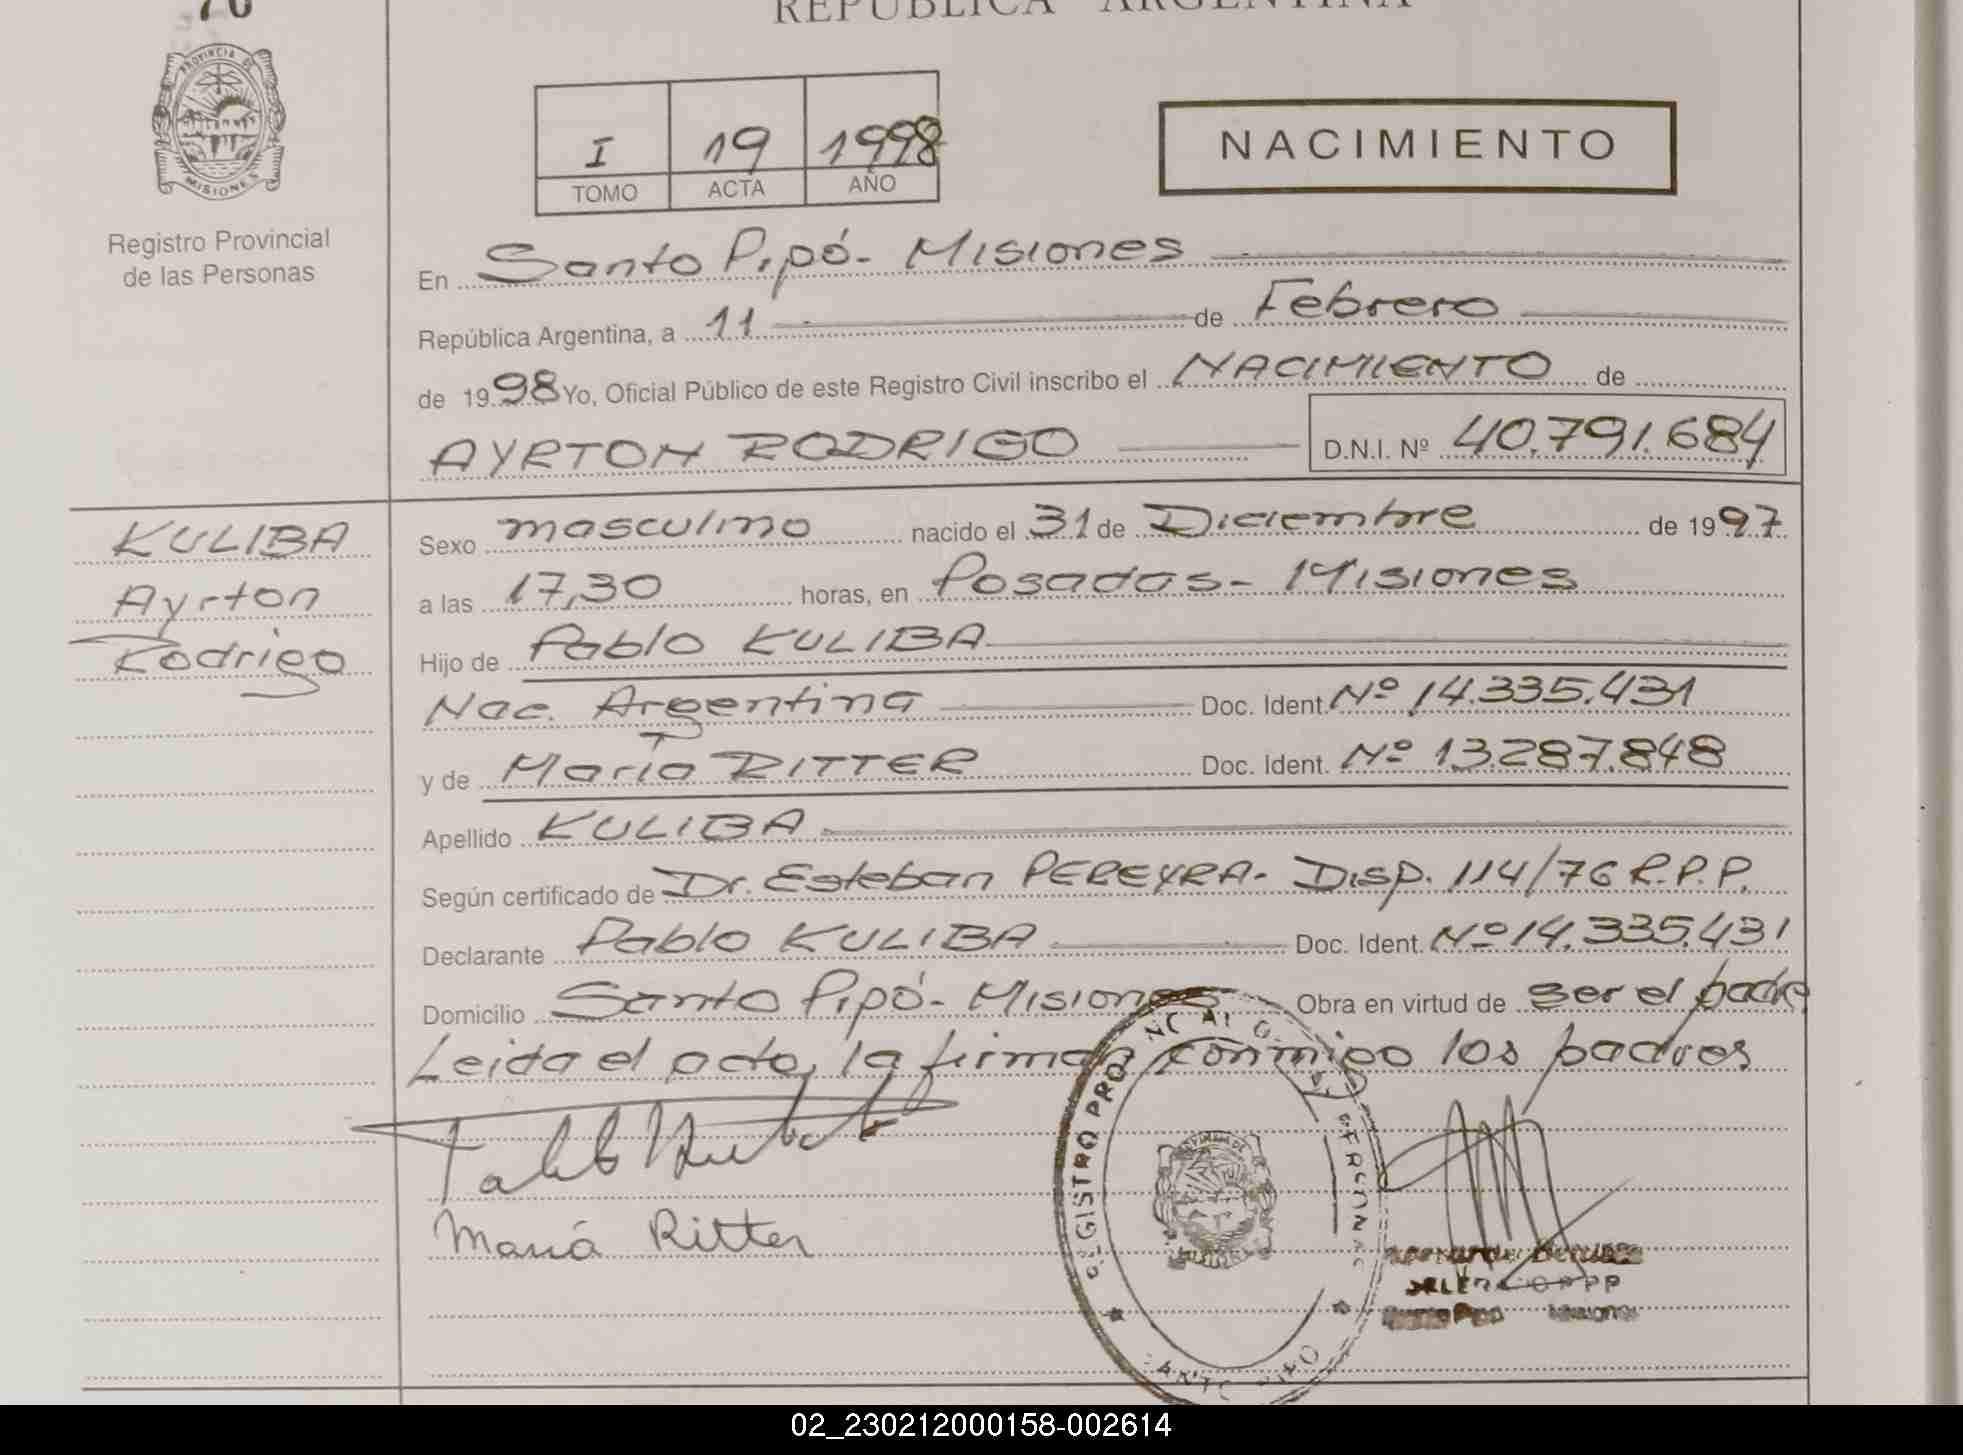 REPUBLICA ARGENTINA
PROVINCIA DE
MISIONES
Registro Provincial
de las Personas
I 19 1998
TOMO ACTA AÑO
NACIMIENTO
En Santo Pipó - Misiones
República Argentina, a 11 de Febrero
de 1998 Yo, Oficial Público de este Registro Civil inscribo el NACIMIENTO de
AYRTON RODRIGO D.N.I. Nº 40.791.684
KULIBA
Ayrton
Rodrigo
Sexo masculino nacido el 31 de Diciembre de 1997
a las 17,30 horas, en Posadas - Misiones
Hijo de Pablo KULIBA
Nac. Argentina Doc. Ident. Nº 14.335.431
y de María RITTER Doc. Ident. Nº 13.287.848
Apellido KULIBA
Según certificado de Dr. Esteban PEREYRA - Disp. 114/76 R.P.P.
Declarante Pablo KULIBA Doc. Ident. Nº 14.335.431
Domicilio Santo Pipó - Misiones Obra en virtud de ser el padre
Leida el acta, la firman conmigo los padres
Pablo
María Ritter
REGISTRO
02_230212000158-002614